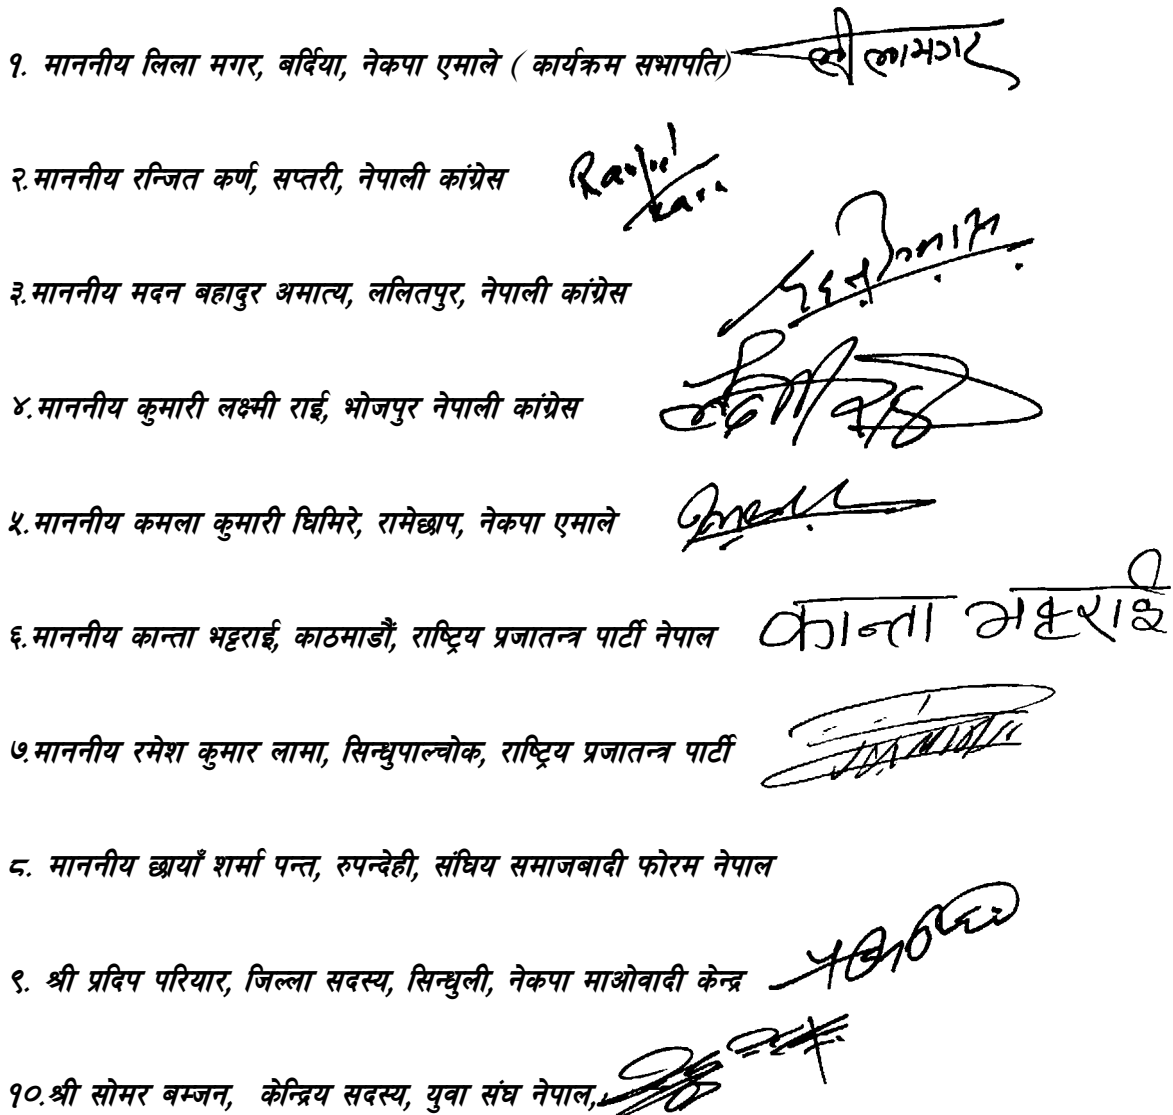 १. माननीय लिला मगर, बर्दिया, नेकपा एमाले ( कार्यक्रम सभापति) लीलामगर
२.माननीय रन्जित कर्ण, सप्तरी, नेपाली कांग्रेस
३.माननीय मदन बहादुर अमात्य, ललितपुर, नेपाली कांग्रेस
४.माननीय कुमारी लक्ष्मी राई, भोजपुर नेपाली कांग्रेस
५.माननीय कमला कुमारी घिमिरे, रामेछाप, नेकपा एमाले
६.माननीय कान्ता भट्टराई, काठमाडौं, राष्ट्रिय प्रजातन्त्र पार्टी नेपाल कान्ता भट्टराई
७.माननीय रमेश कुमार लामा, सिन्धुपाल्चोक, राष्ट्रिय प्रजातन्त्र पार्टी
८. माननीय छायाँ शर्मा पन्त, रुपन्देही, संघिय समाजबादी फोरम नेपाल
९. श्री प्रदिप परियार, जिल्ला सदस्य, सिन्धुली, नेकपा माओवादी केन्द्र
१०.श्री सोमर बम्जन, केन्द्रिय सदस्य, युवा संघ नेपाल,